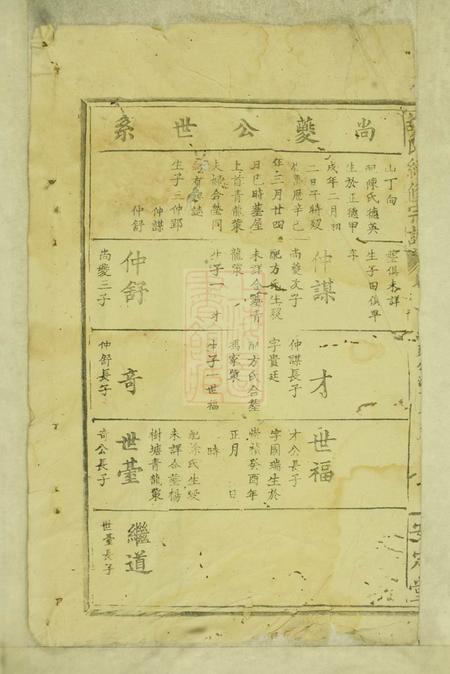 尚夔公世系
山丁向
配陳氏德英
生於正德甲
戌年二月初
二日子時歿
萬曆辛已
年三月廿四
日巳時墓屋
上首青龍䉼
夫婦合墓同
生子三仲郢
仲謀
仲舒
墓俱未詳
仲謀
尚夔次子
配方氏生歿
未詳合墓青
生子一才
仲舒
尚夔三子
才
仲謀長子
字貴廷
配方氏合墓
生子一世福
奇
仲舒長子
世福
才公長子
字國瑞生於
崇禎癸酉年
正月 日
時
配 氏生歿
未詳合墓楊
樹塘青龍
世臺
奇公長子
繼道
世臺長子
安定堂